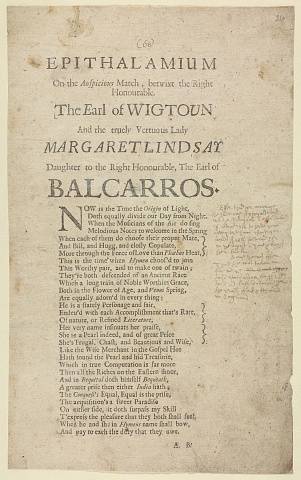 (60)
EPITHALAMIUM
On the Auspicious Match, betwixt the Right
Honourable,
The Earl of WIGTOUN
And the truely Vertuous Lady
MARGARET LINDSAY
Daughter to the Right Honourable, The Earl of
BALCARROS.
NOW is the Time the Origin of Light,
Doth equally divide our Day from Night.
When the Musicians of the Air do sing
Melodious Notes to welcome in the Spring
When each of them do choose their proper Mate,
And Bill, and Hugg, and closly Copulate,
More through the Force of Love than Phœbus Heat,
This is the time when Hymen choos'd to join
This Worthy pair, and to make one of twain;
They're both descended of an Ancient Race
Which a long train of Noble Worthies Grace,
Both in the Flower of Age, and Vernal Spring,
Are equally adorn'd in every thing;
He is a stately Personage and fair,
Endeu'd with each Accomplishment that's Rare,
Of nature, or Refined Literature,
Her very name insinuats her praise,
She is a Pearl indeed, and of great Price
She's Frugal, Chast, and Beauteous and Wise,
Like the Wise Merchant in the Gospel Hee
Hath found the Pearl and hid Treasure,
Which in true Computation is far more
Then all the Riches on the Eastern shoar,
And in Requital doth himself Bequeath,
A greater prise then either India hath;
The Conquest's Equal, Equal is the prise,
The acquisition's a sweet Paradise
On either side, it doth surpass my Skill
T'express the pleasure that they both shall feel,
When he and she in Hymens name shall bow,
And pay to each the duty that they owe.